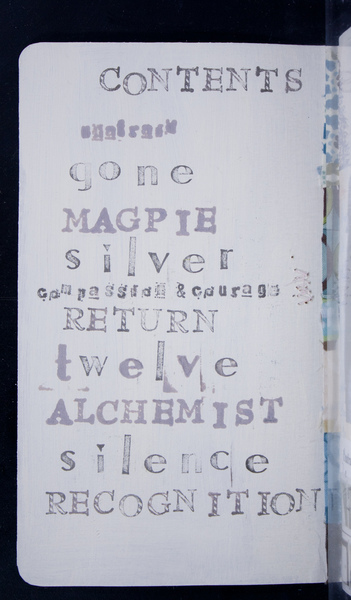 CONTENTS
gone
MAGPIE
silver
compassion & courage
RETURN
twelve
ALCHEMIST
silence
RECOGNITION